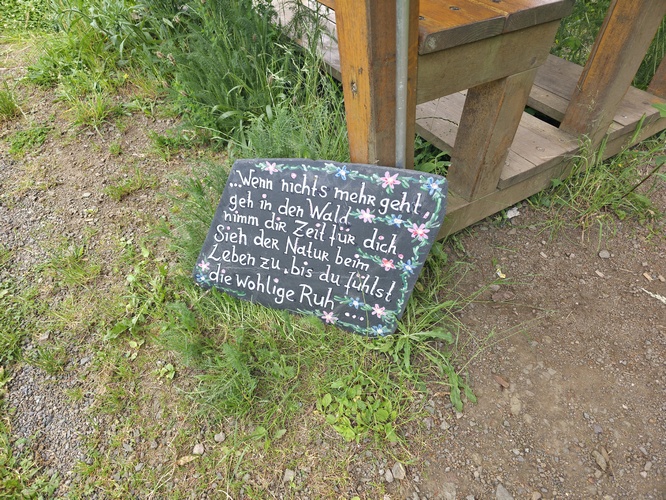 „Wenn nichts mehr geht
geh in den Wald
nimm dir Zeit für dich
Sieh der Natur beim
Leben zu, bis du fühlst
die wohlige Ruh ...